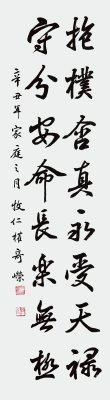 抱樸含真永受天祿
守分安命長樂無極
辛丑年家庭之月 牧仁權奇嶸